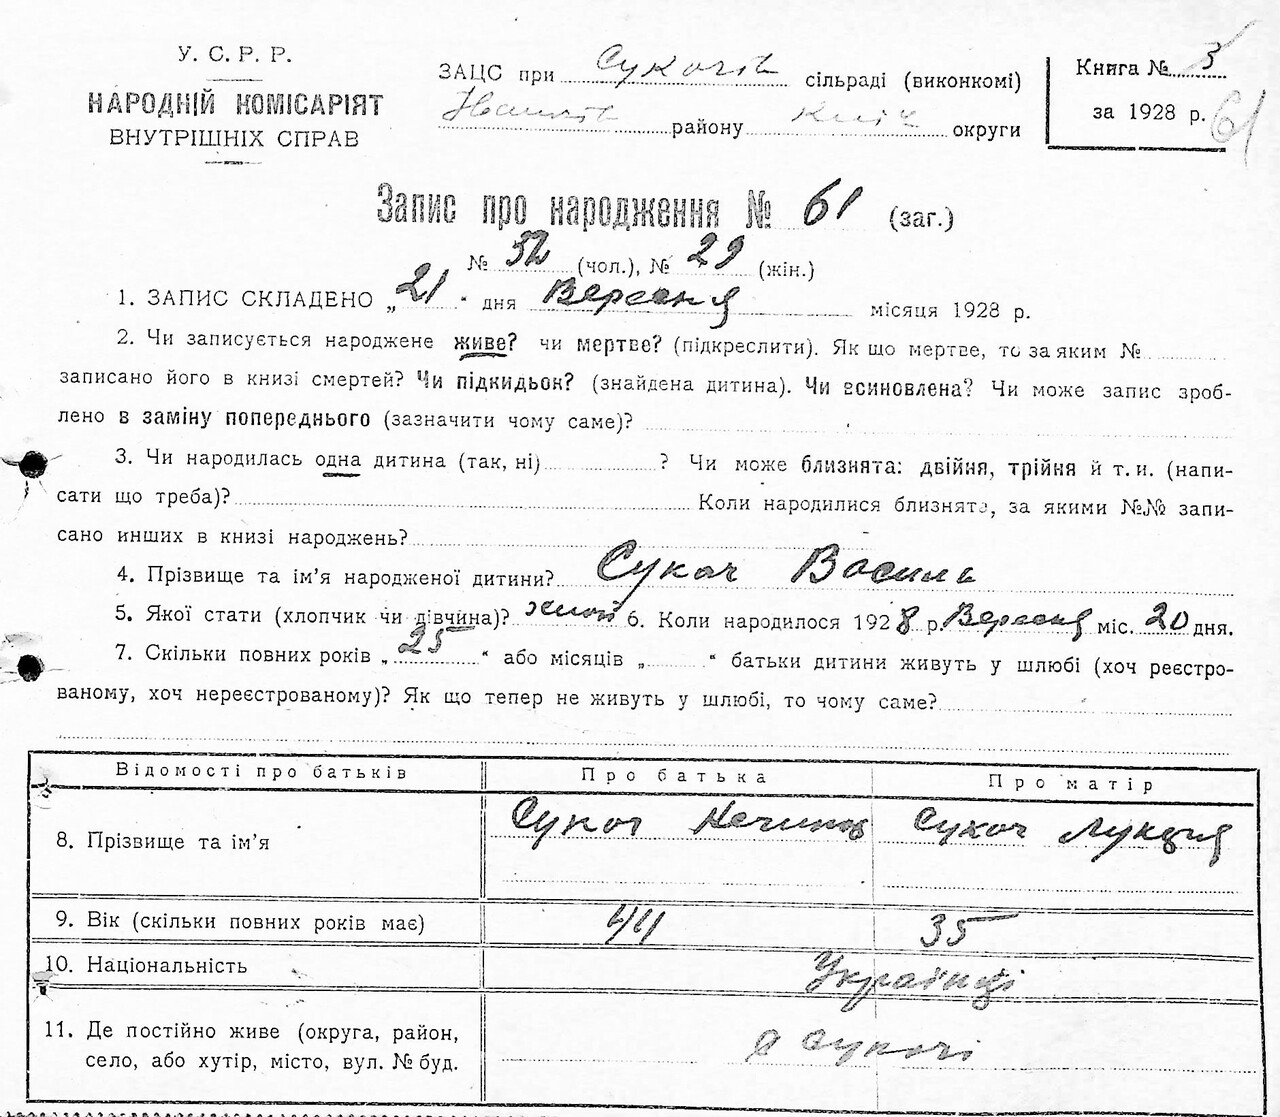 У. С. Р. Р.
НАРОДНІЙ КОМІСАРІЯТ
ВНУТРІШНІХ СПРАВ
ЗАЦС при Сукачів сільраді (виконкомі)
району округи
Книга № 3
за 1928 р.
61
Запис про народження № 61 (заг.)
№ 32 (чол.), № 29 (жін.)
1. ЗАПИС СКЛАДЕНО „21“ дня Вересня місяця 1928 р.
2. Чи записується народжене живе? чи мертве? (підкреслити). Як що мертве, то за яким №
записано його в книзі смертей? Чи підкидьок? (знайдена дитина). Чи всиновлена? Чи може запис зроб-
лено в заміну попереднього (зазначити чому саме)?
3. Чи народилась одна дитина (так, ні) ? Чи може близнята: двійня, трійня й т. и. (напи-
сати що треба)? Коли народилися близнята, за якими №№ запи-
сано инших в книзі народжень?
4. Прізвище та ім’я народженої дитини? Сукач Василь
5. Якої стати (хлопчик чи дівчина)? 6. Коли народилося 1928 р. Вересня міс. 20 дня.
7. Скільки повних років „25“ або місяців „ “ батьки дитини живуть у шлюбі (хоч реєстро-
ваному, хоч нереєстрованому)? Як що тепер не живуть у шлюбі, то чому саме?
Відомості про батьків Про батька Про матір
8. Прізвище та ім’я Сукач Сукач Лукція
9. Вік (скільки повних років має) 44 35
10. Національність Українці
11. Де постійно живе (округа, район,
село, або хутір, місто, вул. № буд. с Сукачі